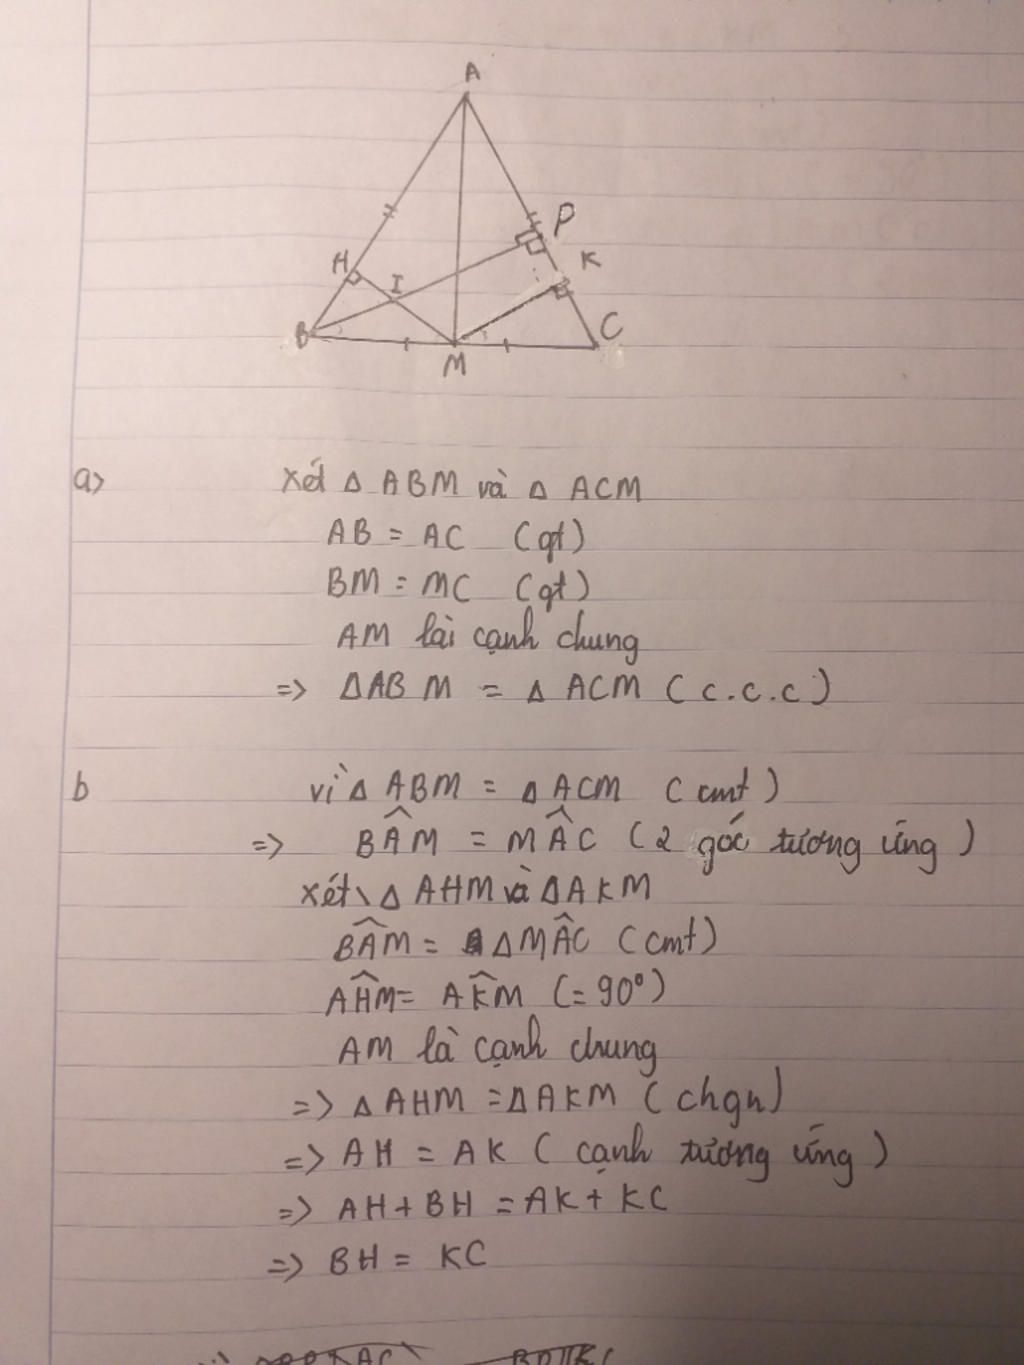 A
P
H
K
I
B
C
M
a> xét Δ ABM và Δ ACM
AB = AC (gt)
BM = MC (gt)
AM lài cạnh chung
=> ΔABM = Δ ACM (c.c.c)
b vì Δ ABM = Δ ACM (cmt)
=> BÂM = MÂC (2 góc tương ứng)
xét Δ AHM và ΔAKM
BÂM = ΔMÂC (cmt)
AĤM = AK̂M (= 90°)
AM là cạnh chung
=> Δ AHM = ΔAKM (chgn)
=> AH = AK (cạnh tương ứng)
=> AH + BH = AK + KC
=> BH = KC